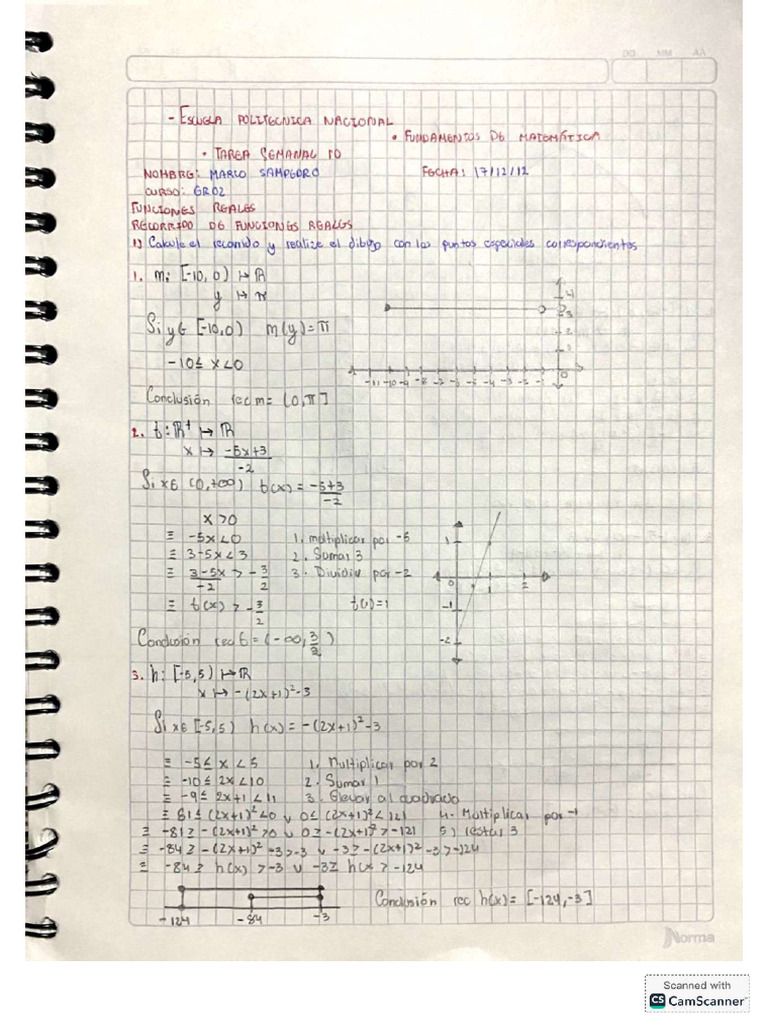 DD MM AA
- ESCUELA POLITECNICA NACIONAL
• FUNDAMENTOS DE MATEMÁTICA
• TAREA SEMANAL 10
NOMBRE: MARCO SAMPEDRO FECHA: 17/12/12
CURSO: GR02
FUNCIONES REALES
RECORRIDO DE FUNCIONES REALES
1) Calcule el recorrido y realize el dibujo con los puntos especiales correspondientes
1. m: [-10, 0) ↦ ℝ
y ↦ π
Si y ∈ [-10,0) m(y) = π
-10 ≤ x < 0
4
3
2
1
-11 -10 -9 -8 -7 -6 -5 -4 -3 -2 -1 0
Conclusión rec m = (0, π]
2. t: ℝ⁺ ↦ ℝ
x ↦ (-5x+3)/-2
Si x ∈ (0, +∞) t(x) = (-5+3)/-2
x > 0
≡ -5x < 0 1. multiplicar por -5
≡ 3-5x < 3 2. Sumar 3
≡ (3-5x)/-2 > -3/2 3. Dividir por -2
≡ t(x) > -3/2 t(1) = 1
1
0 1 2
-1
-2
Conclusión rec t = (-∞, 3/2)
3. h: [-5, 5) ↦ ℝ
x ↦ -(2x+1)²-3
Si x ∈ [-5, 5) h(x) = -(2x+1)²-3
≡ -5 ≤ x < 5 1. Multiplicar por 2
≡ -10 ≤ 2x < 10 2. Sumar 1
≡ -9 ≤ 2x+1 < 11 3. Elevar al cuadrado
≡ 81 ≤ (2x+1)² < 0 ∨ 0 ≤ (2x+1)² < 121 4. Multiplicar por -1
≡ -81 ≥ -(2x+1)² > 0 ∨ 0 ≥ -(2x+1)² > -121 5) restar 3
≡ -84 ≥ -(2x+1)² -3 > -3 ∨ -3 ≥ -(2x+1)² -3 > -124
≡ -84 ≥ h(x) > -3 ∨ -3 ≥ h(x > -124
-124 -84 -3
Conclusión rec h(x) = [-124, -3]
Norma
Scanned with
CS CamScanner